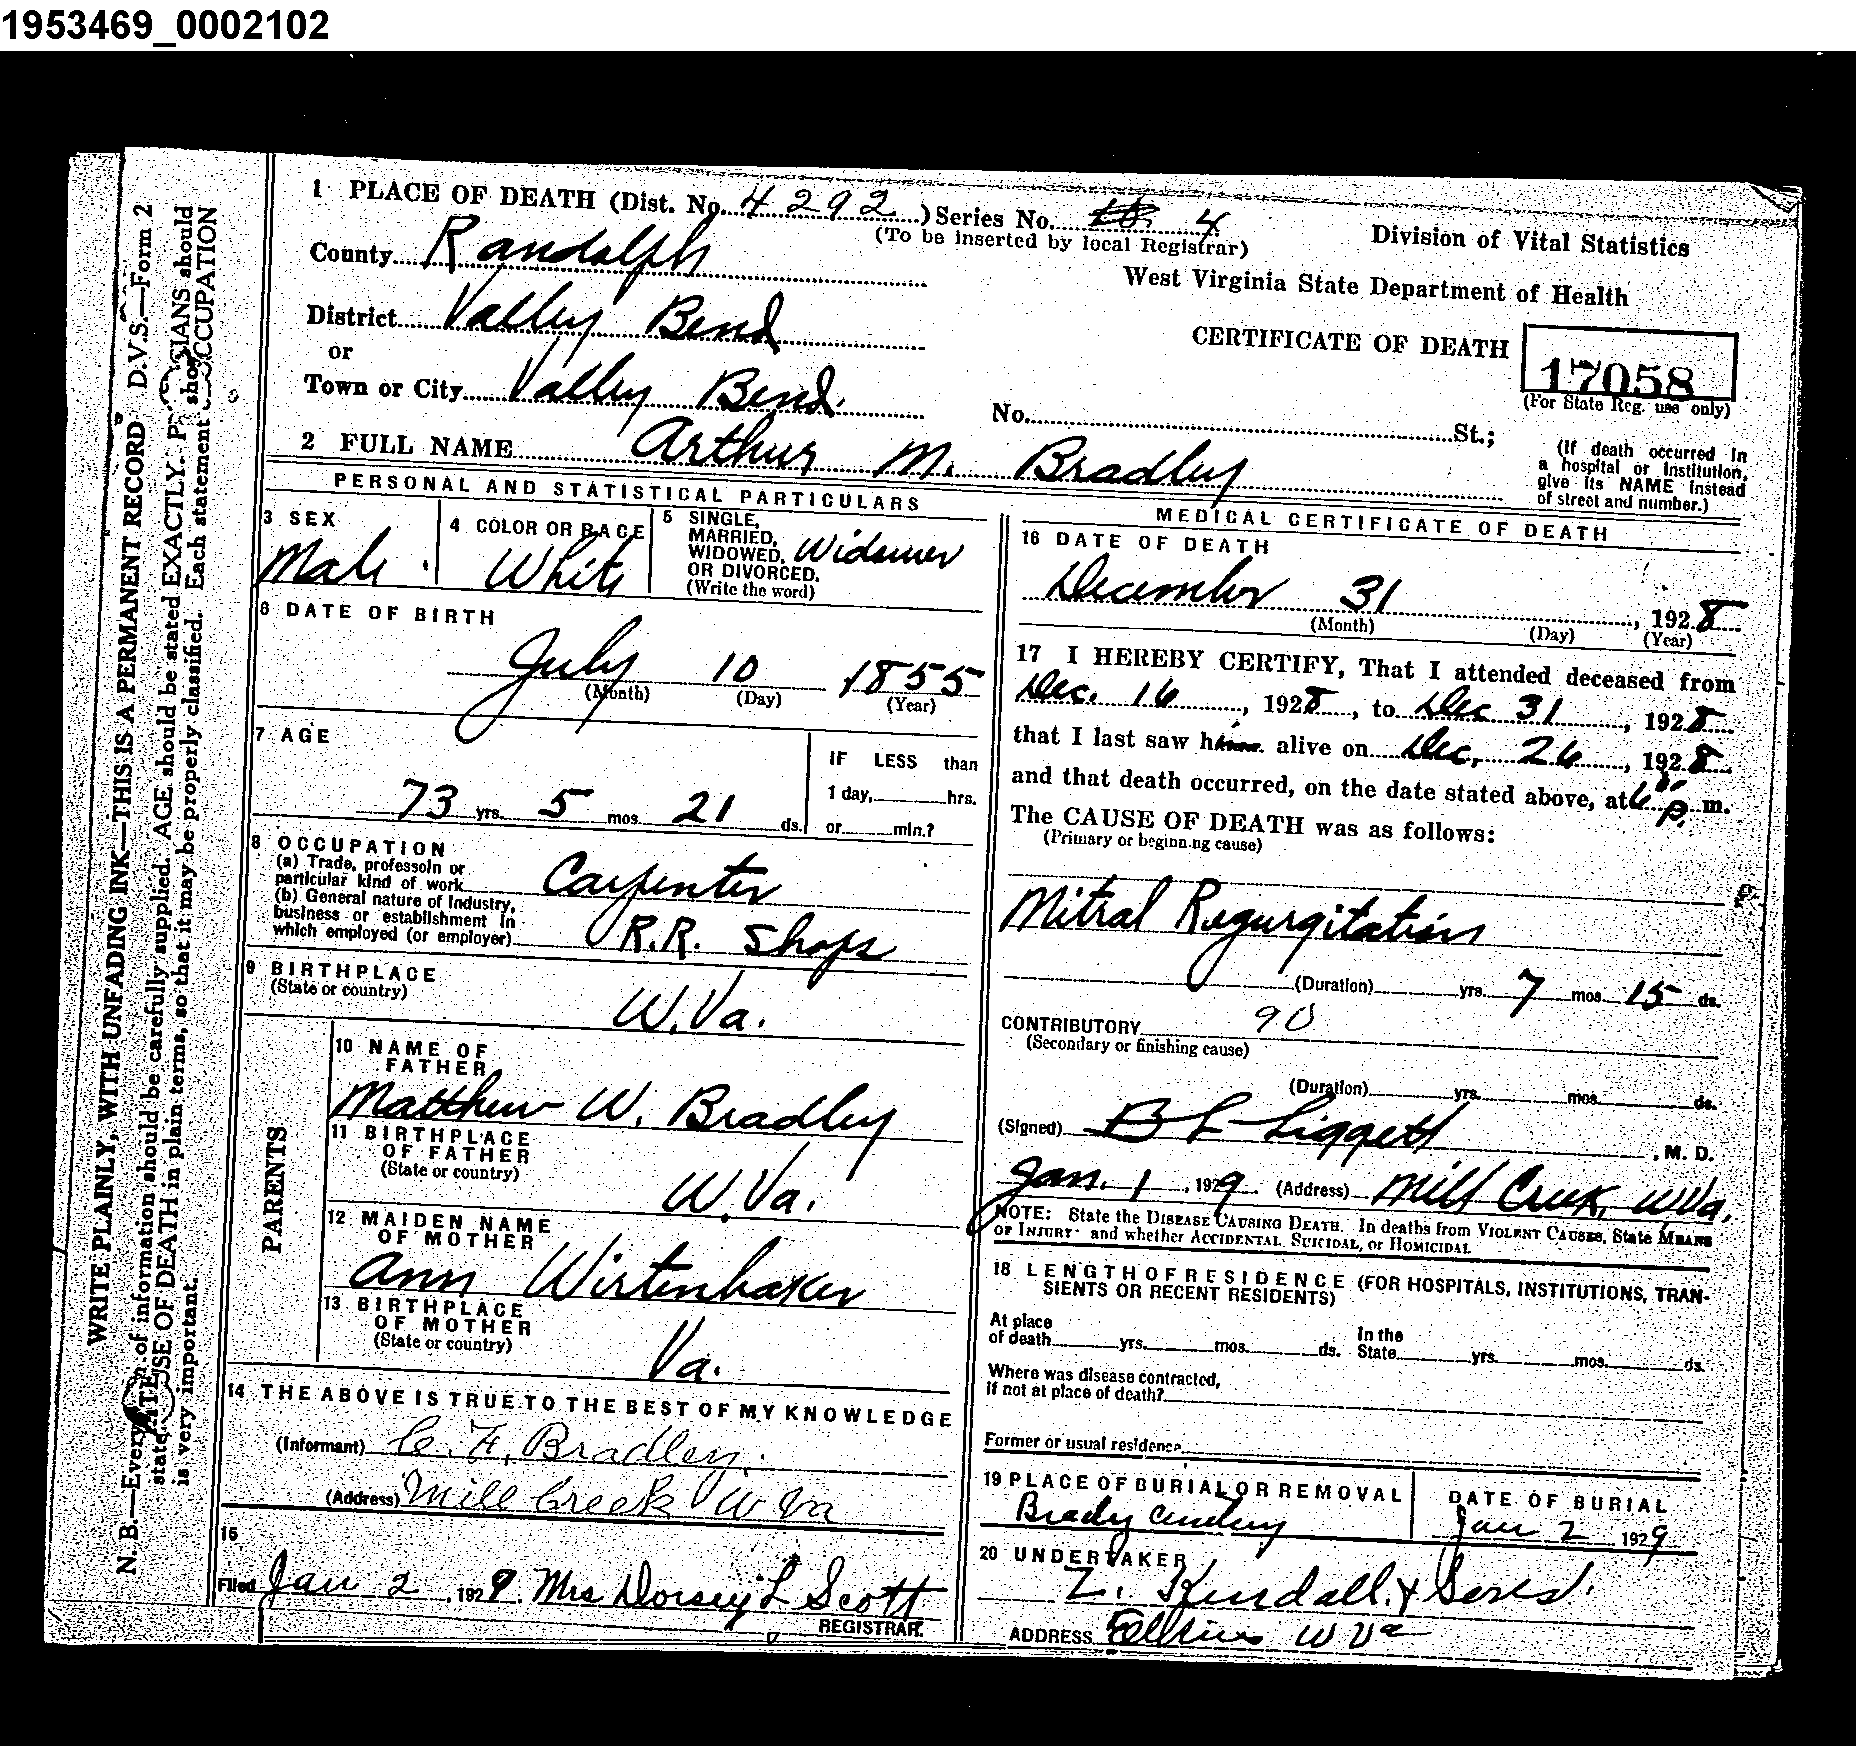 1953469_0002102
1 PLACE OF DEATH (Dist. No. 4292) Series No. 4
(To be inserted by local Registrar)
Division of Vital Statistics
County Randolph
West Virginia State Department of Health
District Valley Bend
CERTIFICATE OF DEATH
17058
(For State Reg. use only)
or
Town or City Valley Bend.
No. St.;
(If death occurred in
a hospital or institution,
give its NAME instead
of street and number.)
2 FULL NAME Arthur M. Bradley
PERSONAL AND STATISTICAL PARTICULARS
3 SEX
Male
4 COLOR OR RACE
White
5 SINGLE,
MARRIED,
WIDOWED,
OR DIVORCED.
(Write the word)
Widower
6 DATE OF BIRTH
July 10 1855
(Month) (Day) (Year)
7 AGE
73 yrs. 5 mos. 21 ds.
IF LESS than
1 day, hrs.
or min.?
8 OCCUPATION
(a) Trade, professoin or
particular kind of work Carpenter
(b) General nature of Industry,
business or establishment in
which employed (or employer) R.R. Shops
9 BIRTHPLACE
(State or country)
W.Va.
PARENTS
10 NAME OF
FATHER
Matthew W. Bradley
11 BIRTHPLACE
OF FATHER
(State or country)
W.Va.
12 MAIDEN NAME
OF MOTHER
Ann Wirtenbaker
13 BIRTHPLACE
OF MOTHER
(State or country)
Va.
14 THE ABOVE IS TRUE TO THE BEST OF MY KNOWLEDGE
(Informant) C. F. Bradley
(Address) Mill Creek W Va
15
Filed Jan 2, 1929. Mrs Dorsey L Scott
REGISTRAR.
MEDICAL CERTIFICATE OF DEATH
16 DATE OF DEATH
December 31, 1928
(Month) (Day) (Year)
17 I HEREBY CERTIFY, That I attended deceased from
Dec. 16, 1928, to Dec 31, 1928
that I last saw him alive on Dec, 26, 1928
and that death occurred, on the date stated above, at 6 p. m.
The CAUSE OF DEATH was as follows:
(Primary or beginning cause)
Mitral Regurgitation
(Duration) yrs. 7 mos. 15 ds.
CONTRIBUTORY 90
(Secondary or finishing cause)
(Duration) yrs. mos. ds.
(Signed) B L Liggett, M. D.
Jan. 1, 1929. (Address) Mill Creek, W.Va.
NOTE: State the DISEASE CAUSING DEATH. In deaths from VIOLENT CAUSES, State MEANS
OF INJURY and whether ACCIDENTAL, SUICIDAL, or HOMICIDAL
18 LENGTH OF RESIDENCE (FOR HOSPITALS, INSTITUTIONS, TRAN-
SIENTS OR RECENT RESIDENTS)
At place
of death yrs. mos. ds.
In the
State yrs. mos. ds.
Where was disease contracted,
if not at place of death?
Former or usual residence
19 PLACE OF BURIAL OR REMOVAL
Brady Cemetery
DATE OF BURIAL
Jan 2 1929
20 UNDERTAKER
Z. Kendall & Sons.
ADDRESS Elkins W Va
WRITE PLAINLY, WITH UNFADING INK—THIS IS A PERMANENT RECORD D.V.S.—Form 2
N. B.—Every of information should be carefully supplied. AGE should be stated EXACTLY.
state USE OF DEATH in plain terms, so that it may be properly classified. Each statement OCCUPATION
is very important.